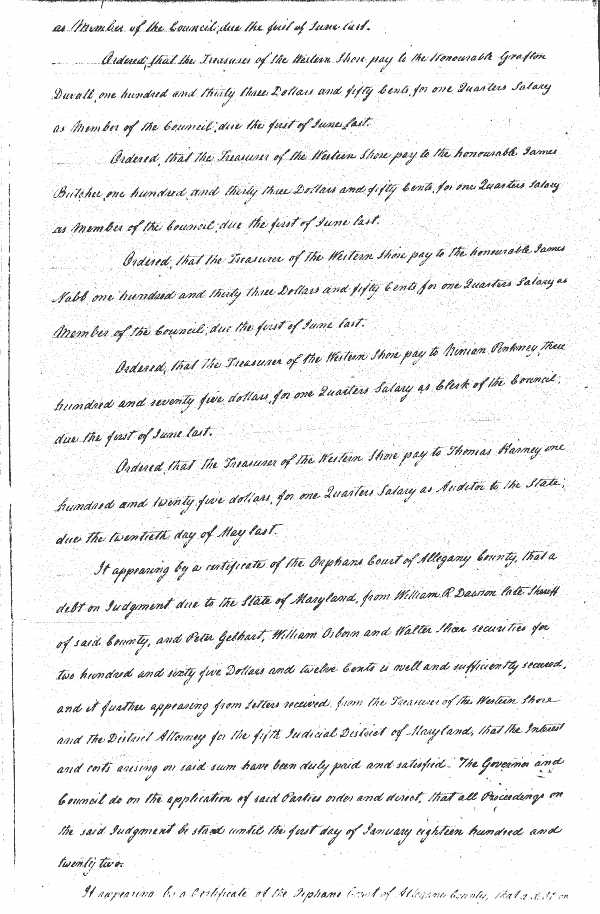 as Member of the Council; due the first of June last.
Ordered, that the Treasurer of the Western Shore pay to the Honourable Grafton
Duvall, one hundred and thirty three Dollars and fifty Cents, for one Quarters Salary
as Member of the Council; due the first of June last.
Ordered, that the Treasurer of the Western Shore pay to the honourable James
Butcher, one hundred and thirty three Dollars and fifty Cents, for one Quarters Salary
as Member of the Council; due the first of June last.
Ordered, that the Treasurer of the Western Shore pay to the honourable James
Nabb one hundred and thirty three Dollars and fifty Cents, for one Quarters Salary as
Member of the Council; due the first of June last.
Ordered, that the Treasurer of the Western Shore pay to Ninian Pinkney, three
hundred and seventy five dollars, for one Quarters Salary as Clerk of the Council;
due the first of June last.
Ordered, that the Treasurer of the Western Shore pay to Thomas Karney one
hundred and twenty five dollars, for one Quarters Salary as Auditor to the State;
due the twentieth day of May last.
It appearing by a certificate of the Orphans Court of Allegany County, that a
debt on Judgment due to the State of Maryland, from William R Dawson late Sheriff
of said County, and Peter Gelhart, William Osborn and Walter Slicer securities for
two hundred and sixty five Dollars and twelve Cents is well and sufficiently secured,
and it further appearing from Letters received from the Treasurer of the Western Shore
and the District Attorney for the fifth Judicial District of Maryland, that the Interest
and costs arising on said sum have been duly paid and satisfied. The Governor and
Council do on the application of said Parties order and direct, that all Proceedings on
the said Judgment be staid until the first day of January eighteen hundred and
twenty two.
It appearing by a Certificate of the Orphans Court of Allegany County, that a debt on